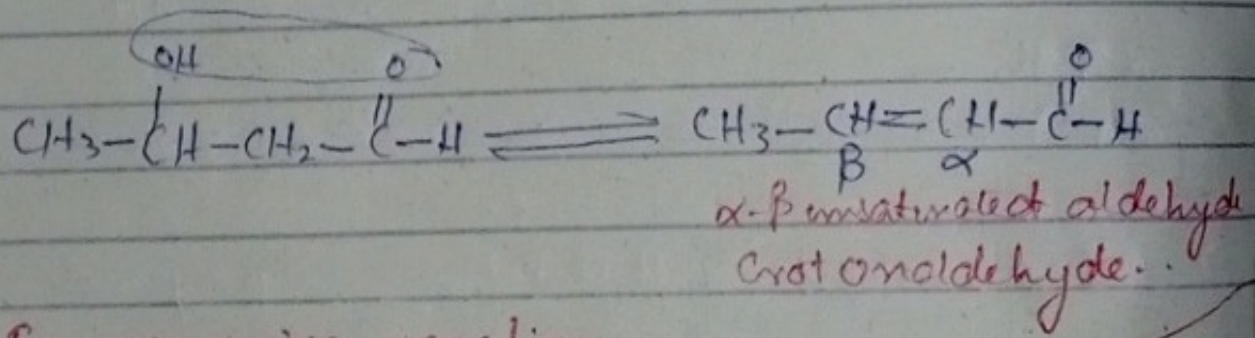 OH O O
CH3-CH-CH2-C-H ⇌ CH3-CH=CH-C-H
β α
α-β unsaturated aldehyde
Crotonaldehyde..